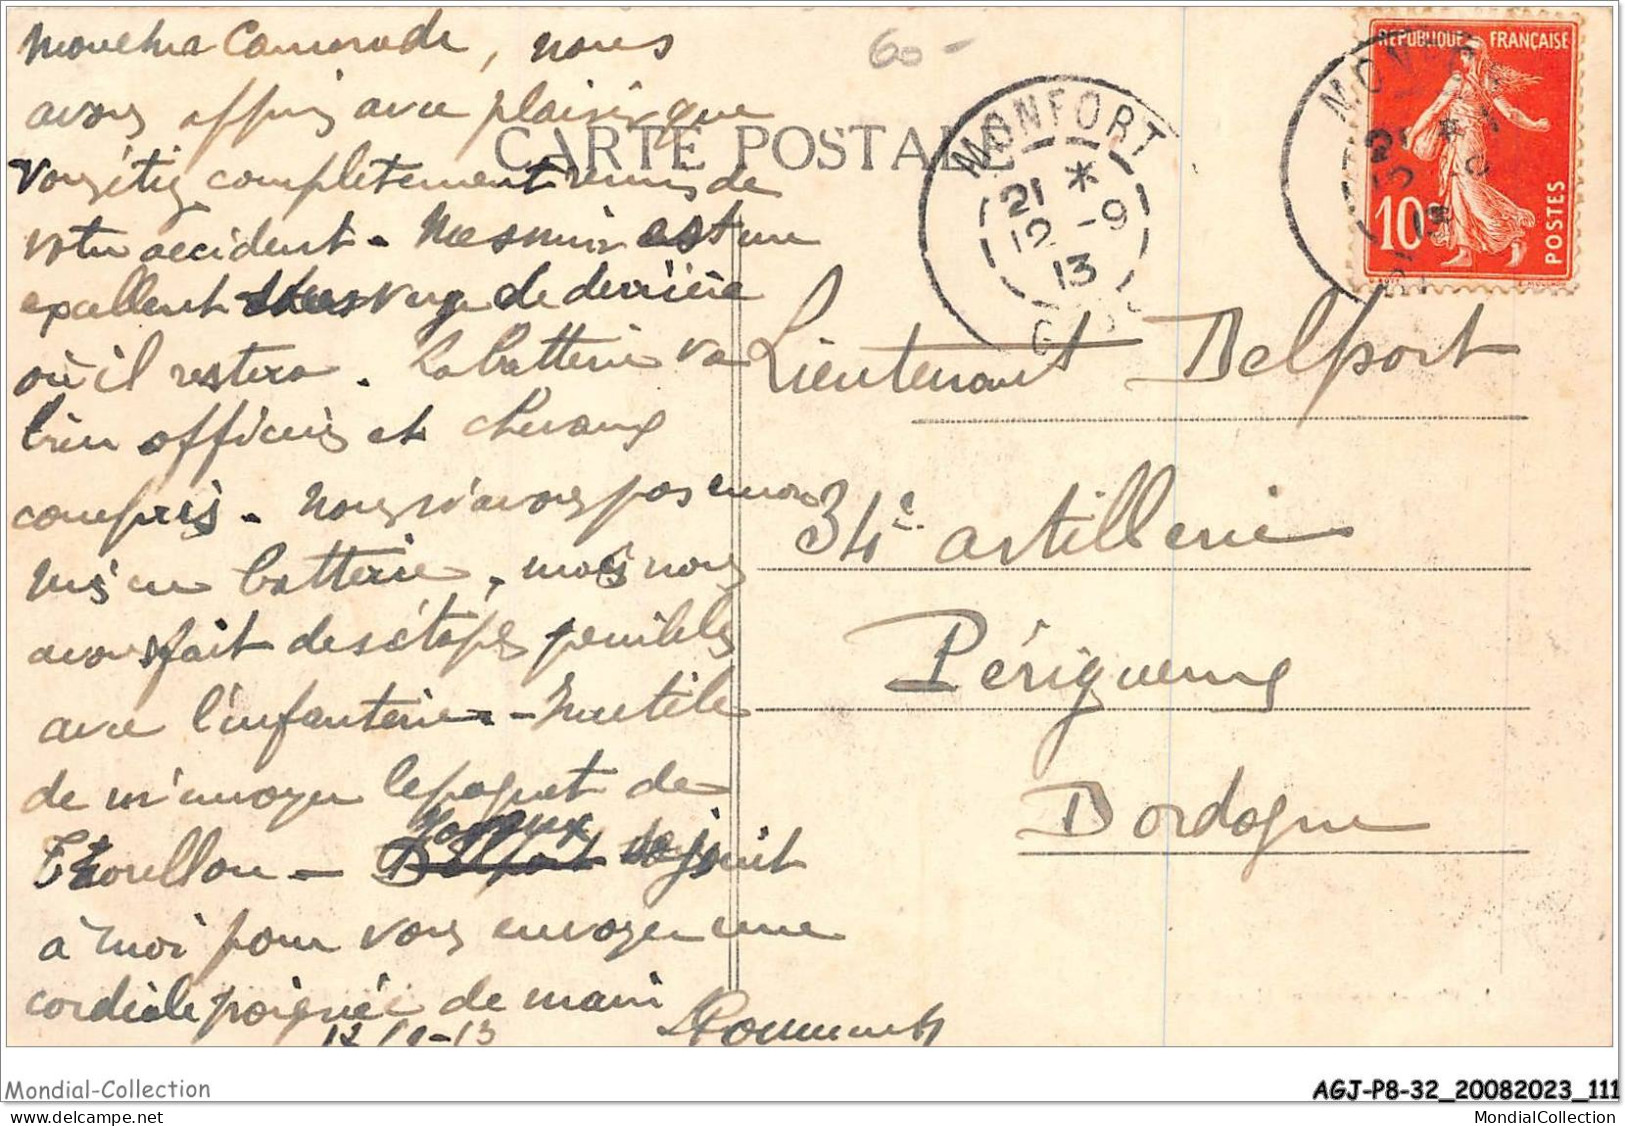 Mon cher Camarade, nous
avons appris avec plaisir que
vous étiez complètement remis de
votre accident - Mesmin est un
excellent serre-file de derrière
où il restera. La batterie va
bien officiers et chevaux
compris. Nous n'avons pas encore
mis en batterie, mais nous
avons fait des étapes pénibles
avec l'infanterie - Inutile
de m'envoyer le paquet de
Thouillon - se joint
à moi pour vous envoyer une
cordiale poignée de main
12/9-13
60-
CARTE POSTALE
MONFORT
21 *
12 -9
13
GERS
REPUBLIQUE FRANÇAISE
10
POSTES
Lieutenant Delport
34e artillerie
Périgueux
Dordogne
Mondial-Collection
AGJ-P8-32_20082023_111
www.delcampe.net
MondialCollection